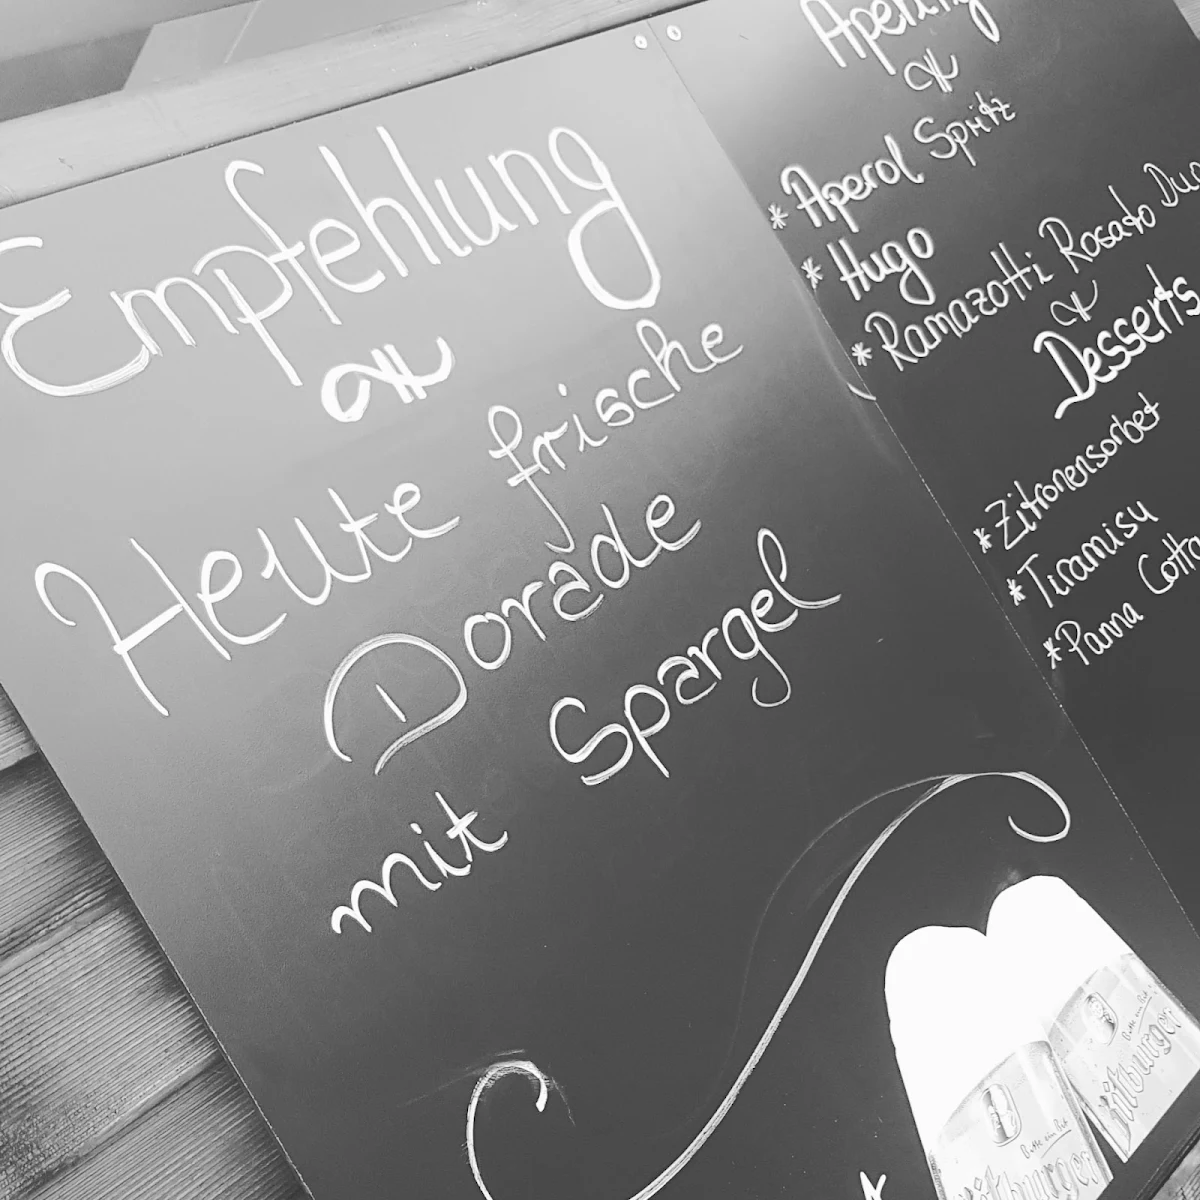 Empfehlung
Heute frische
Dorade
mit Spargel
* Aperol Spritz
* Hugo
* Ramazotti Rosato
Desserts
* Zitronensorbet
* Tiramisu
* Panna Cotta
Bitte ein Bit
Bitburger
Bitte ein Bit
Bitburger